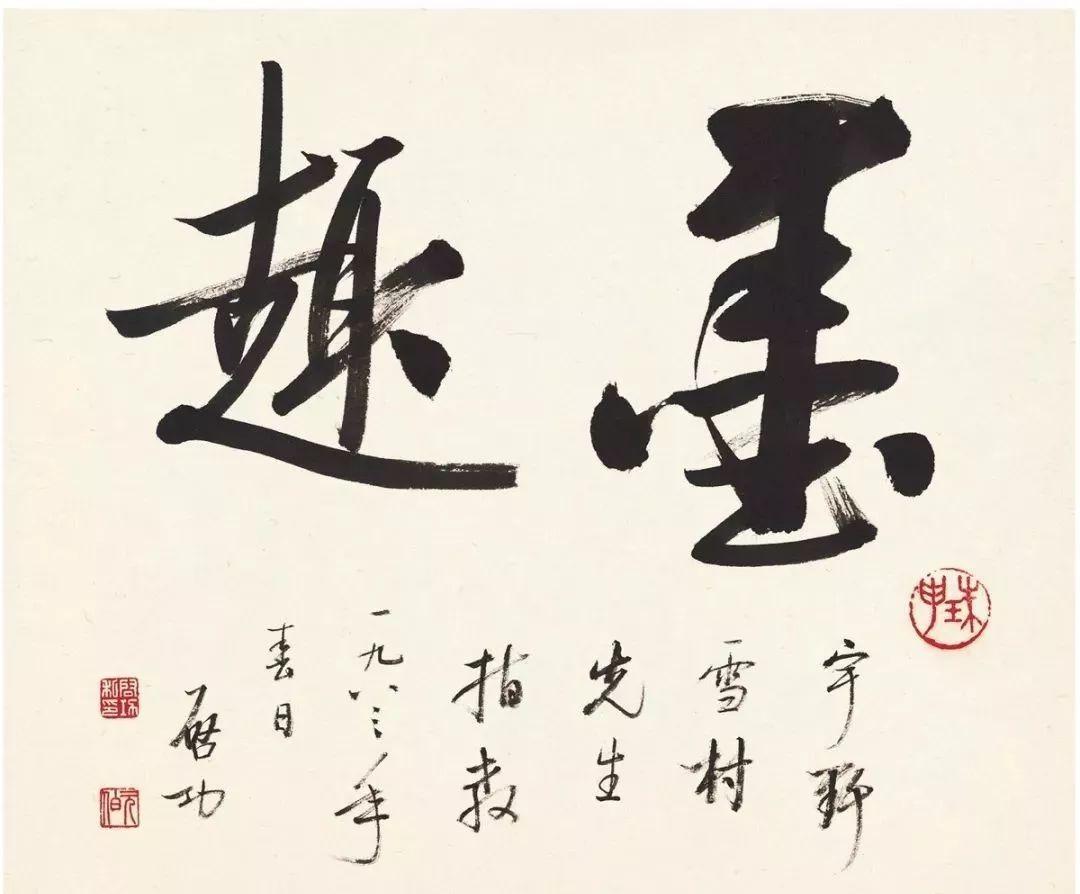 墨趣
宇野
雪村
先生
指教
一九八三年
春日
启功